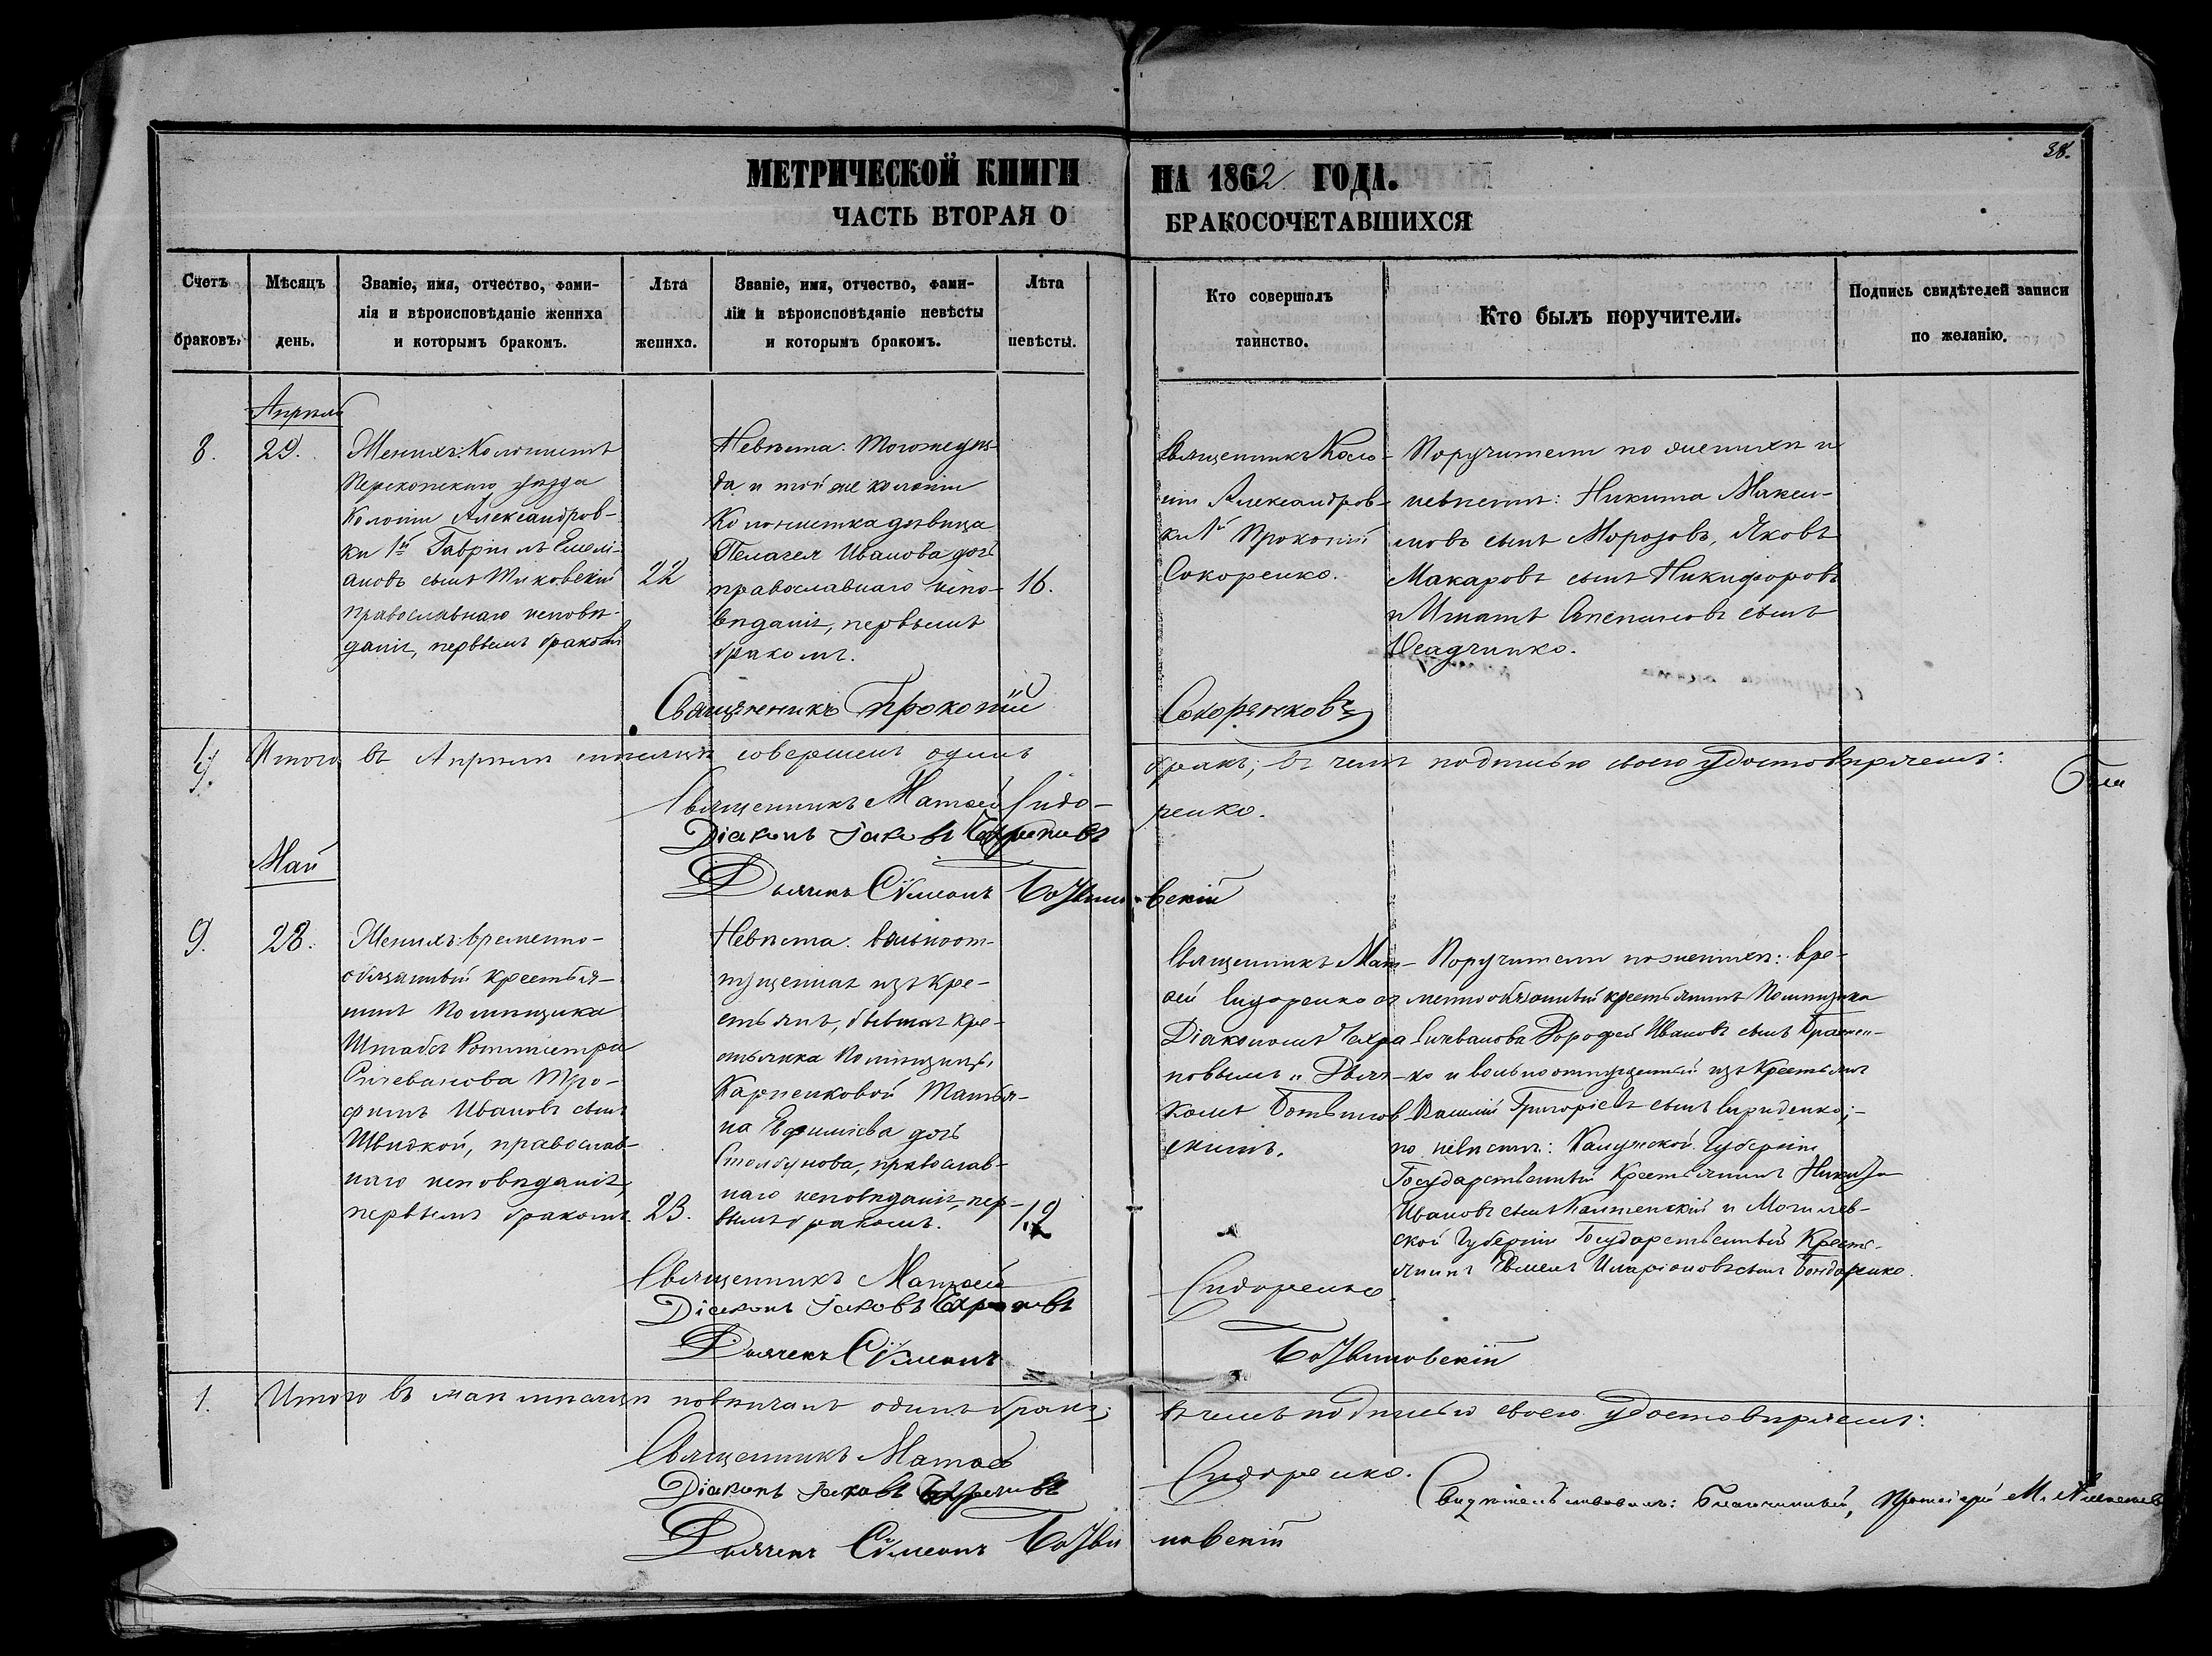 38.
МЕТРИЧЕСКОЙ КНИГИ НА 1862 ГОДА.
ЧАСТЬ ВТОРАЯ О БРАКОСОЧЕТАВШИХСЯ
Счетъ браковъ.
Мѣсяцъ день.
Званіе, имя, отчество, фами-
лія и вѣроисповѣданіе жениха
и которымъ бракомъ.
Лѣта жениха.
Званіе, имя, отчество, фами-
лія и вѣроисповѣданіе невѣсты
и которымъ бракомъ.
Лѣта невѣсты.
Кто совершалъ
таинство.
Кто былъ поручители.
Подпись свидѣтелей записи
по желанію.
Апрѣль
8.
29.
Женихъ: Колонистъ
Перекопскаго уѣзда
Колоніи Александров-
ки 1й Гавріилъ Емелі-
ановъ сынъ
православнаго исповѣ-
данія, первымъ бракомъ
22
Невѣста: Тогожеуѣз-
да и той же колоніи
Колонистка дѣвица
Пелагея Иванова дочь
православнаго испо-
вѣданія, первымъ
бракомъ.
16.
Священникъ Коло-
ніи Александров-
ки 1й Прокопій
Сокоренко.
Поручители по женихѣ и
невѣстѣ: Никита Макси-
мовъ сынъ Морозовъ, Яковъ
Макаровъ сынъ Никифоровъ
и Игнатъ Степановъ сынъ
Осадченко.
Священникъ Прокопій Сокоренковъ
Итого въ Апрѣлѣ мѣсяцѣ совершенъ одинъ бракъ; въ чемъ подписью своею удостовѣряемъ:
Священникъ Матѳей Сидо-
ренко.
Діаконъ Іаковъ
Дьячекъ Сѵмеонъ
Май
9.
28.
Женихъ: временно-
обязанный крестья-
нинъ Помѣщика
Штабсъ Ротмистра
Тро-
фимъ Ивановъ сынъ
Швидкой, православ-
наго исповѣданія,
первымъ бракомъ.
23.
Невѣста: вольноот-
пущенная изъ кре-
стьянъ, бывшая кре-
стьянка Помѣщицы
Карпенковой Татья-
на Евфиміева дочь
Столбунова, православ-
наго исповѣданія, пер-
вымъ бракомъ.
Священникъ Мат-
ѳей Сидоренко съ
Діакономъ
и Дьяч-
комъ
Поручители по женихѣ: вре-
меннообязанный крестьянинъ Помѣщика
Дорофей Ивановъ сынъ
и вольноотпущенный изъ Крестьянъ
Василій Григоріевъ сынъ Свириденко;
по невѣстѣ: Калужской Губерніи
Государственный Крестьянинъ Никита
Ивановъ сынъ и Могилев-
ской Губерніи Государственный Кресть-
янинъ Иларіоновъ сынъ Бондаренко.
Священникъ Матѳей Сидоренко.
Діаконъ Іаковъ
Дьячекъ Сѵмеонъ
1.
Итого въ маѣ мѣсяцѣ повѣнчанъ одинъ бракъ; въ чемъ подписью своею удостовѣряемъ:
Священникъ Матѳей Сидоренко.
Діаконъ Іаковъ
Дьячекъ Сѵмеонъ
Свидѣтельствовалъ: Благочинный, Протоіерей М.